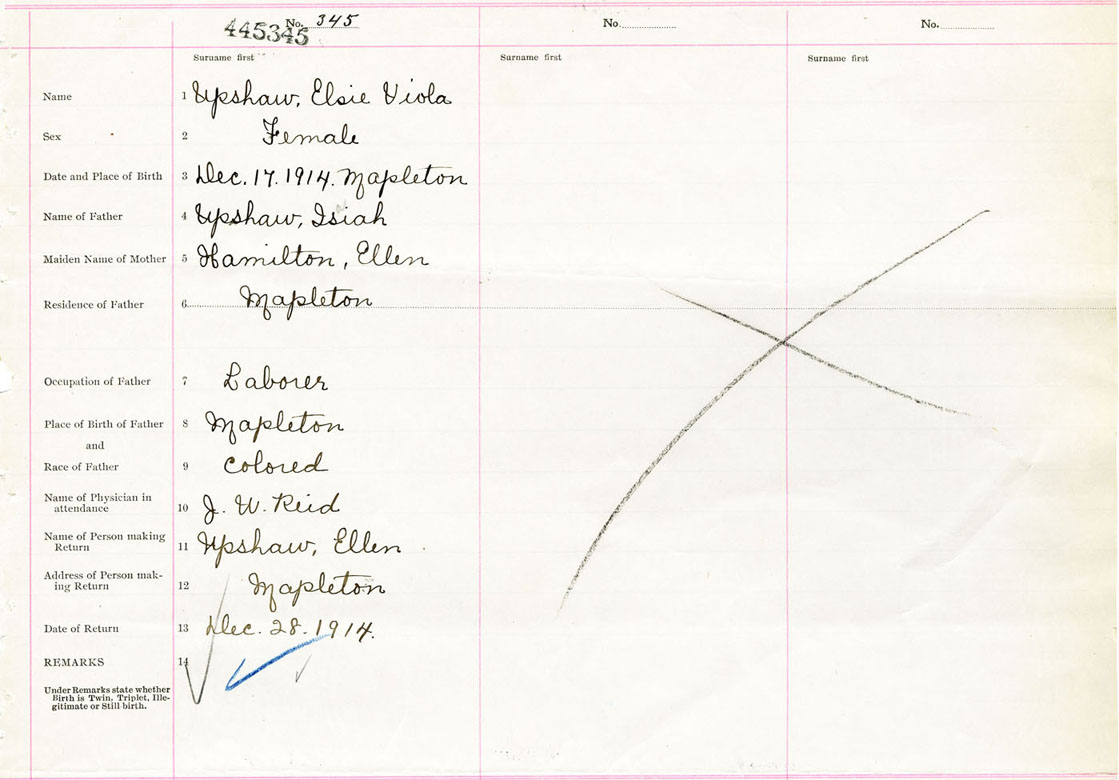 No. 345 No. No.
445345
Surname first Surname first Surname first
Name 1 Upshaw, Elsie Viola
Sex 2 Female
Date and Place of Birth 3 Dec. 17. 1914. Mapleton
Name of Father 4 Upshaw, Isiah
Maiden Name of Mother 5 Hamilton, Ellen
Residence of Father 6 Mapleton
Occupation of Father 7 Laborer
Place of Birth of Father 8 Mapleton
and
Race of Father 9 Colored
Name of Physician in
attendance 10 J. W. Reid
Name of Person making
Return 11 Upshaw, Ellen
Address of Person mak-
ing Return 12 Mapleton
Date of Return 13 Dec. 28. 1914.
REMARKS 14
Under Remarks state whether
Birth is Twin, Triplet, Ille-
gitimate or Still-birth.